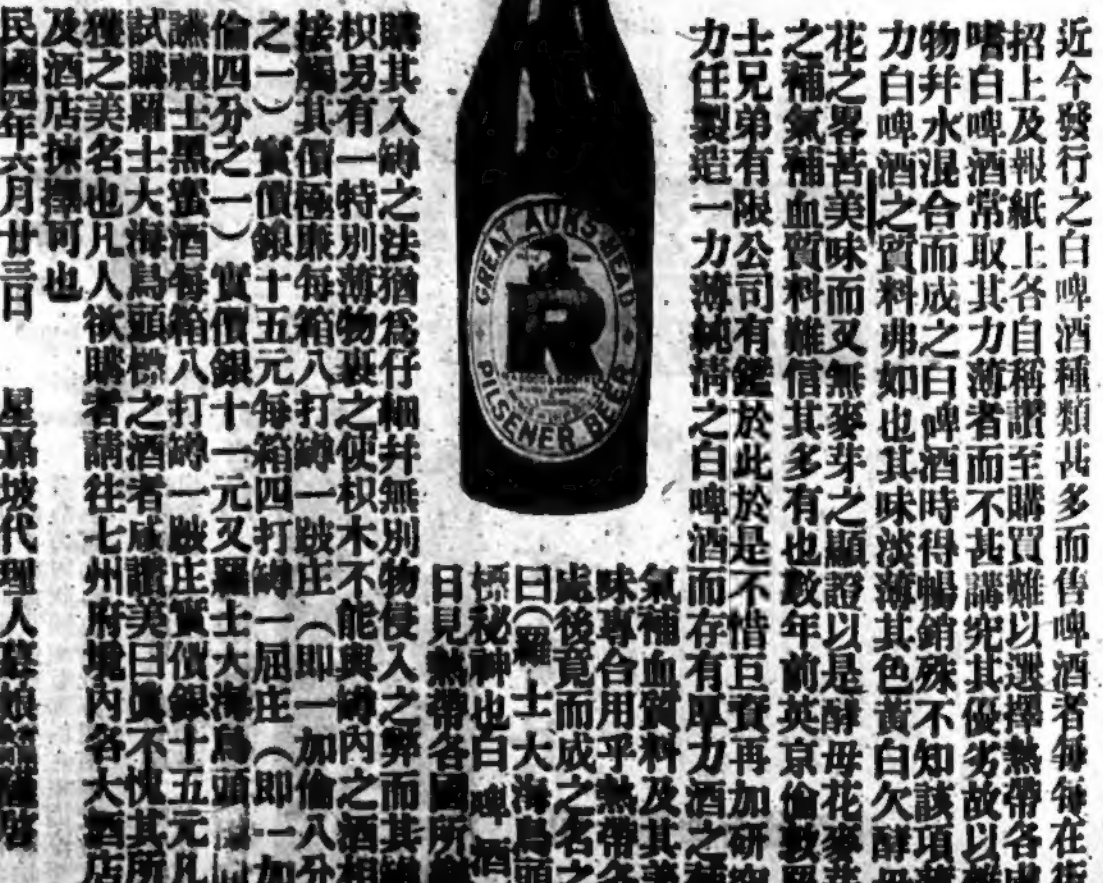 近今發行之白啤酒種類甚多而售啤酒者每每在
招上及報紙上各自稱讚至購買難以選擇熱帶各
嗜白啤酒常取其力薄者而不甚講究其優劣故以
物幷水混合而成之白啤酒時得暢銷殊不知該項
力白啤酒之質料弗如也其味淡薄其色黃白欠酵
花之畧苦美味而又無麥芽之顯證以是酵毋花麥
之補氣補血質料難信其多有也數年前英京倫敦
士兄弟有限公司有鑑於此於是不惜巨資再加研
力任製造一力薄純淸之白啤酒而存有厚力酒之
氣補血質料及其
味專合用乎熱帶各
處後竟而成之名之
曰(羅士大海鳥頭
標秘神也白啤酒
日見熱帶各國所
GREAT AUKS HEAD
R
PILSENER BEER
購其入罇之法猶爲仔細幷無別物侵入之弊而其
枳易有一特別薄物裹之使枳木不能與罇內之酒相
接觸其價極廉每箱八打罇一跛庄(即一加倫八分
之一)實價銀十五元每箱四打罇一屈庄(即一加
倫四分之一)實價銀十一元又羅士大海鳥頭
士黑蜜酒每箱八打罇一跛庄實價銀十五元凡
試購羅士大海鳥頭標之酒者咸讚美曰眞不愧其所
獲之美名也凡人欲購者請往七州府境內各大酒店
及酒店揀擇可也
民國四年六月廿三日 星嘉坡代理人